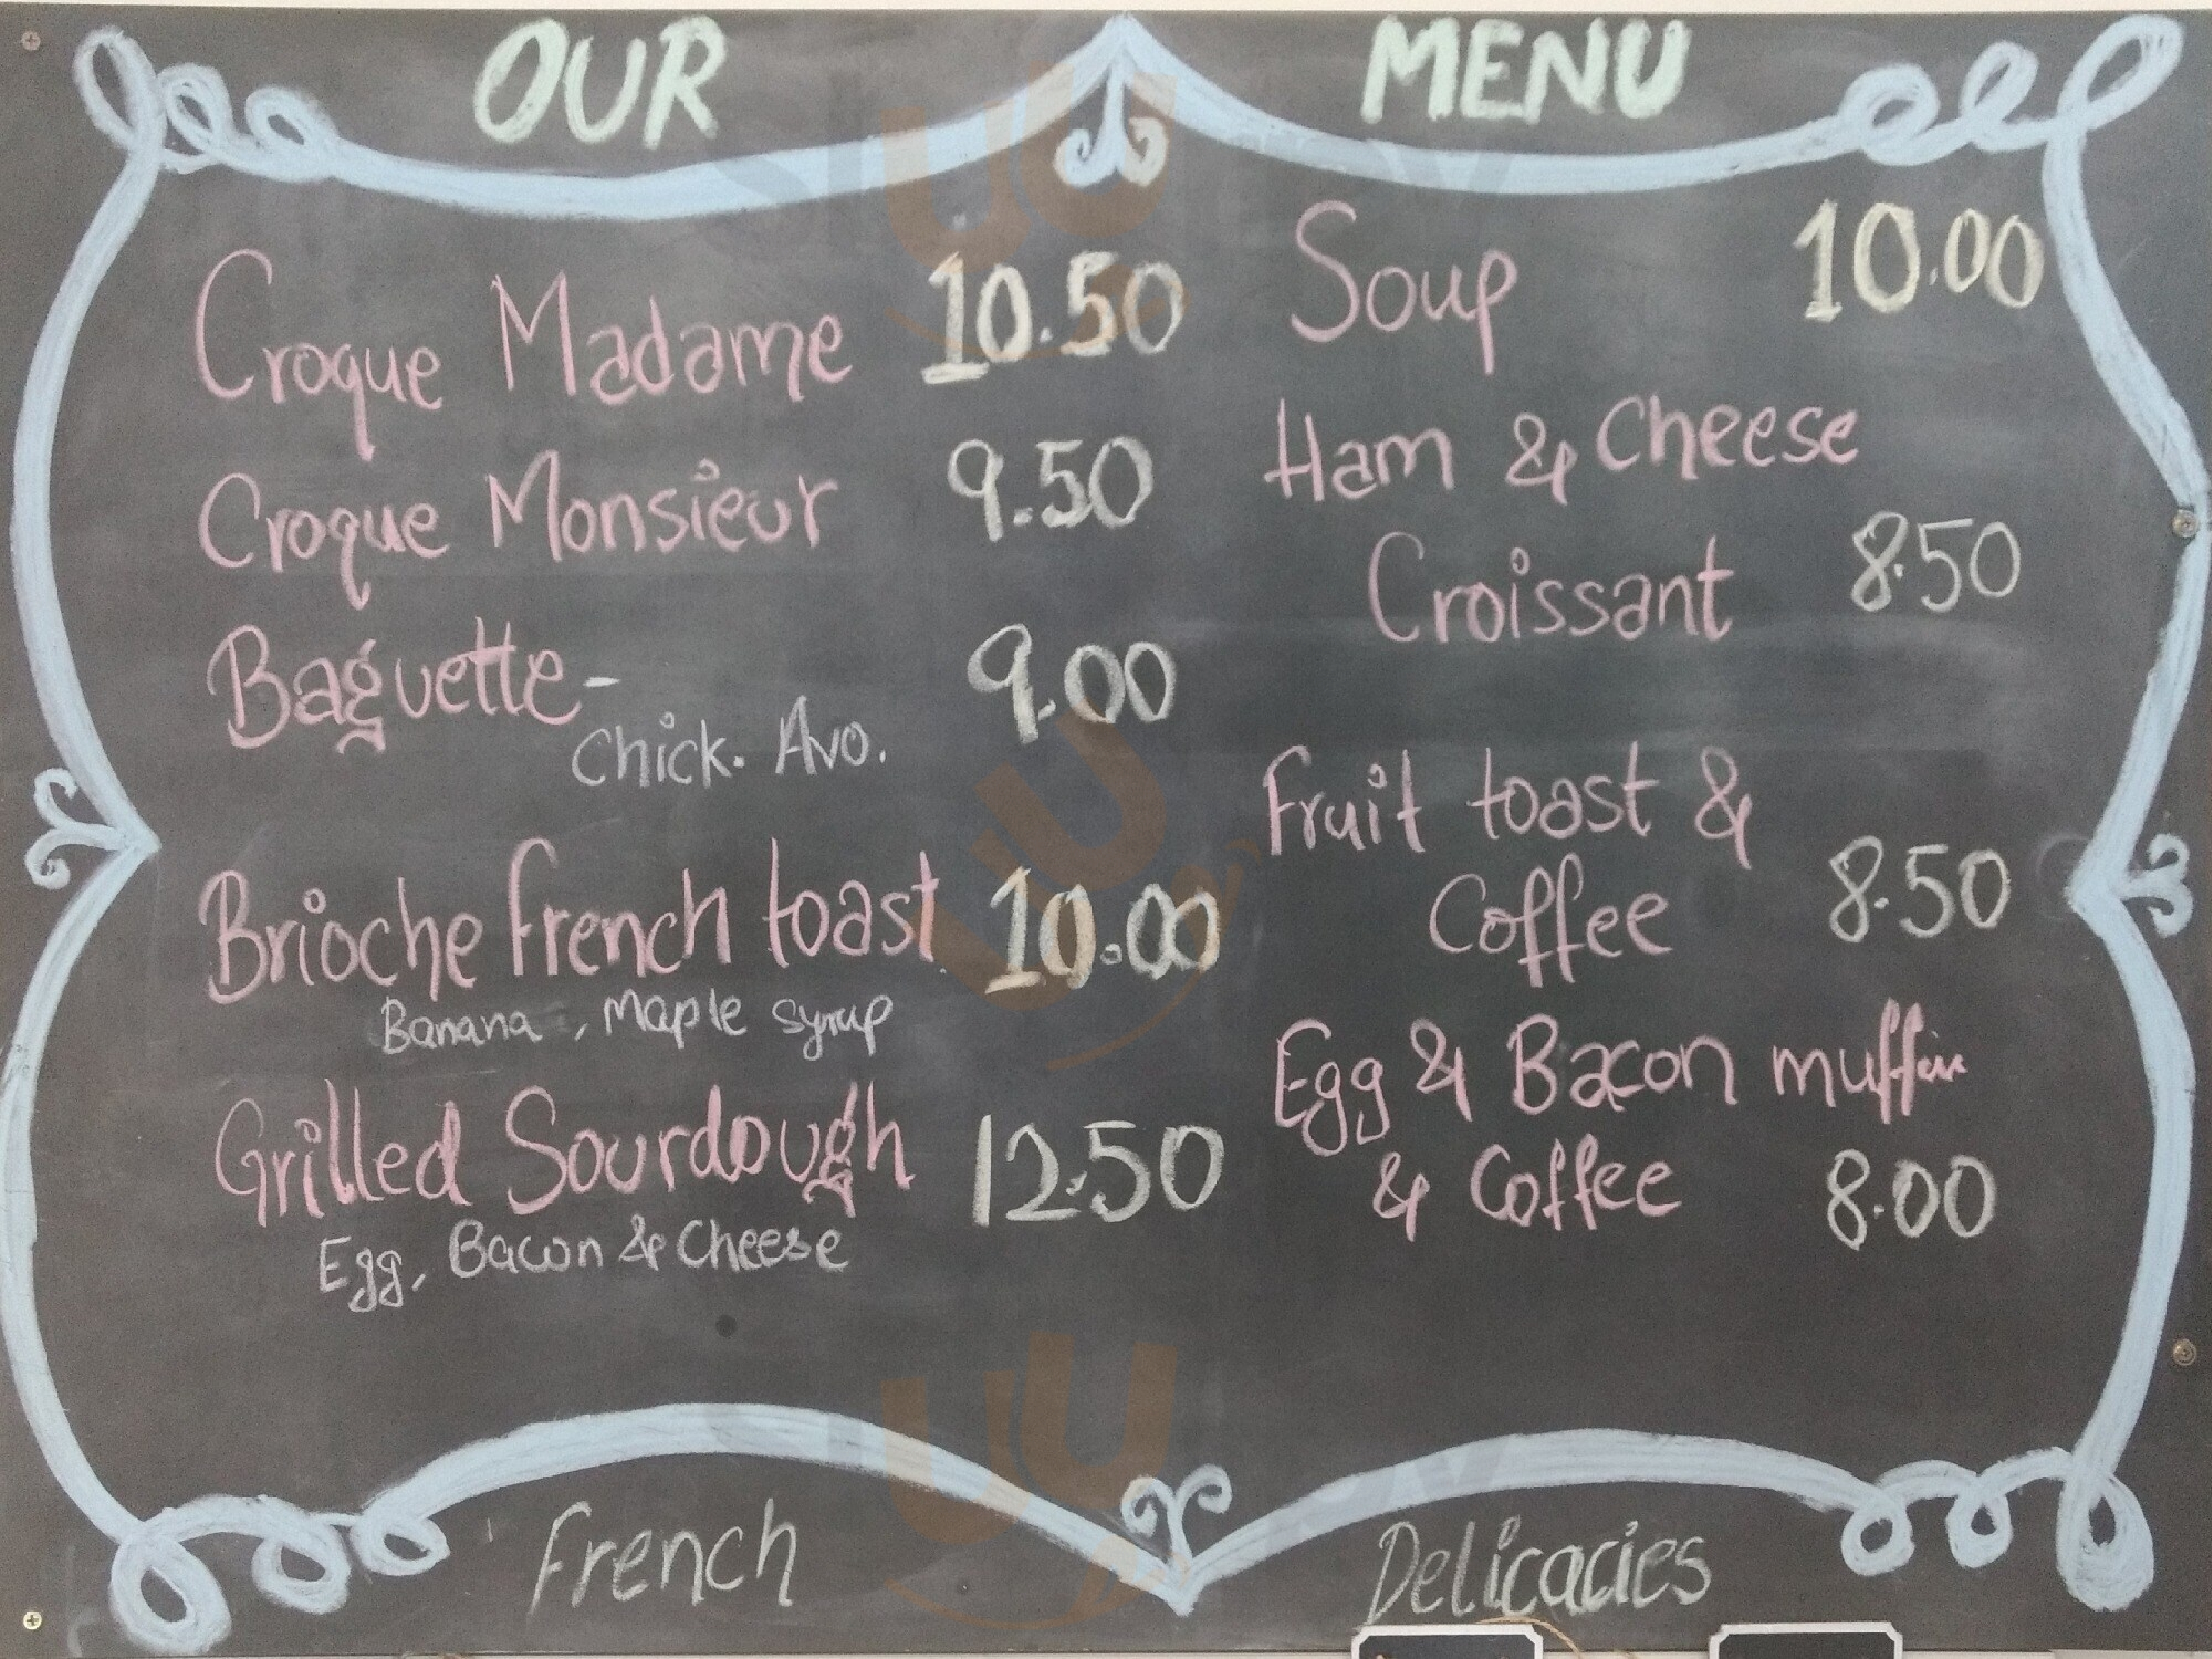 OUR MENU
Croque Madame 10.50
Croque Monsieur 9.50
Baguette- 9.00
Chick. Avo.
Brioche french toast 10.00
Banana, Maple syrup
Grilled Sourdough 12.50
Egg, Bacon & Cheese
Soup 10.00
Ham & Cheese
Croissant 8.50
Fruit toast &
Coffee 8.50
Egg & Bacon muffin
& Coffee 8.00
French Delicacies